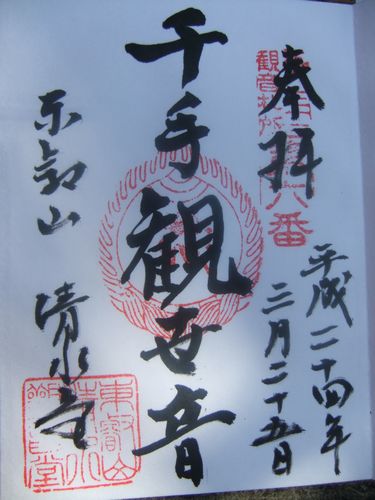 奉拝
観音札所
六番
平成二十四年
三月二十五日
千手観世音
東叡山
清水
東叡山
清水
堂